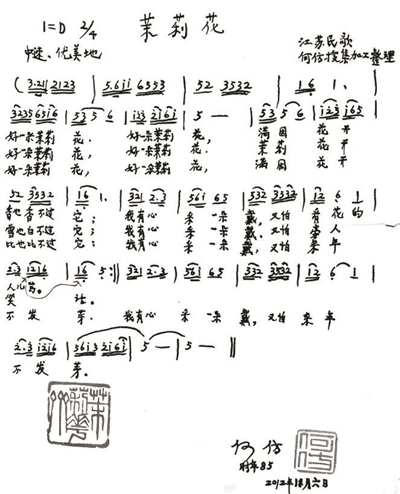 1=D 2/4 茉莉花
中速、优美地
江苏民歌
何仿搜集加工整理
(3·2 1 2123 | 5·6 i 6553 | 52 3532 | 1 6 1 ·
3235 656i | 5 3 5 6 | i23 2i6i | 5 — | 5 3 5 6 | i23 i65
好一朵茉莉花, 好一朵茉莉花, 满园花开
好一朵茉莉花, 好一朵茉莉花, 茉莉花开
好一朵茉莉花, 好一朵茉莉花, 满园花开
52 3532 | 1 6 1· | 321 2·3 | 56i 65 | 532 3532 | 12 6 1
香也香不过它; 我有心采一朵戴, 又怕看花的
雪也白不过它; 我有心采一朵戴, 又怕旁人
比也比不过它; 我有心采一朵戴, 又怕来年
2·3 1216 | 1 6 5 :| 321 2·3 | 56i 65 | 532 3532 | 12 6 1
人儿骂。
笑话。
不发芽。 我有心采一朵戴, 又怕来年
2·3 1216 | 56i3 2i6i | 5 — | 5 — ‖
不发芽。
何仿
时年85